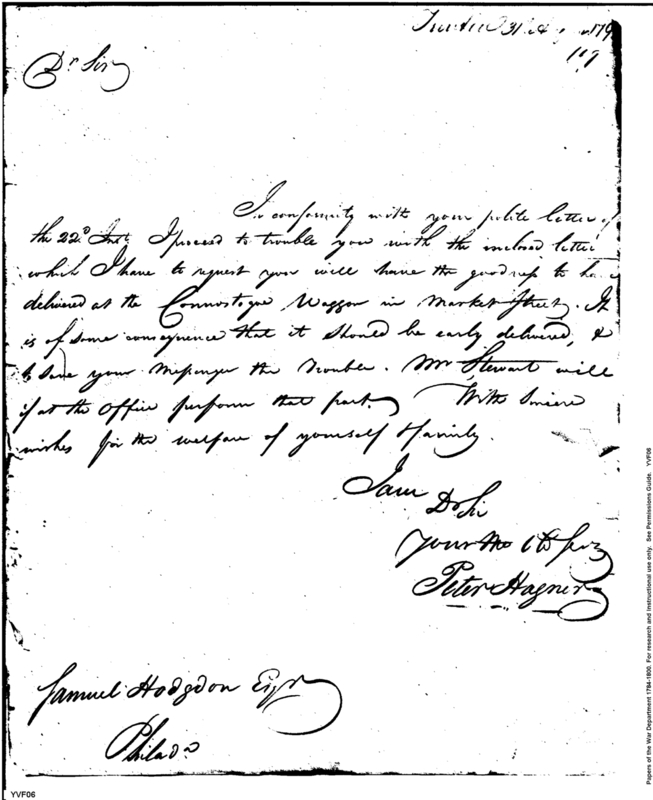 Trenton 31st Aug 179
Dr Sir
In conformity with your polite letter of
the 22d Inst I proceed to trouble you with the inclosed letter
which I have to request you will have the goodness to ha
delivered at the Connostogue Waggon in Market Street. It
is of some consequence that it should be early delivered, &
to save your Messenger the trouble. Mr Stewart will
if at the Office perform that part. With Sincere
wishes for the welfare of yourself & family.
I am
Dr Sir
Your Mo Ob Serv
Peter Hagner
Samuel Hodgdon Esqr
Philada
YVF06
Papers of the War Department 1784-1800. For research and instructional use only. See Permissions Guide. YVF06